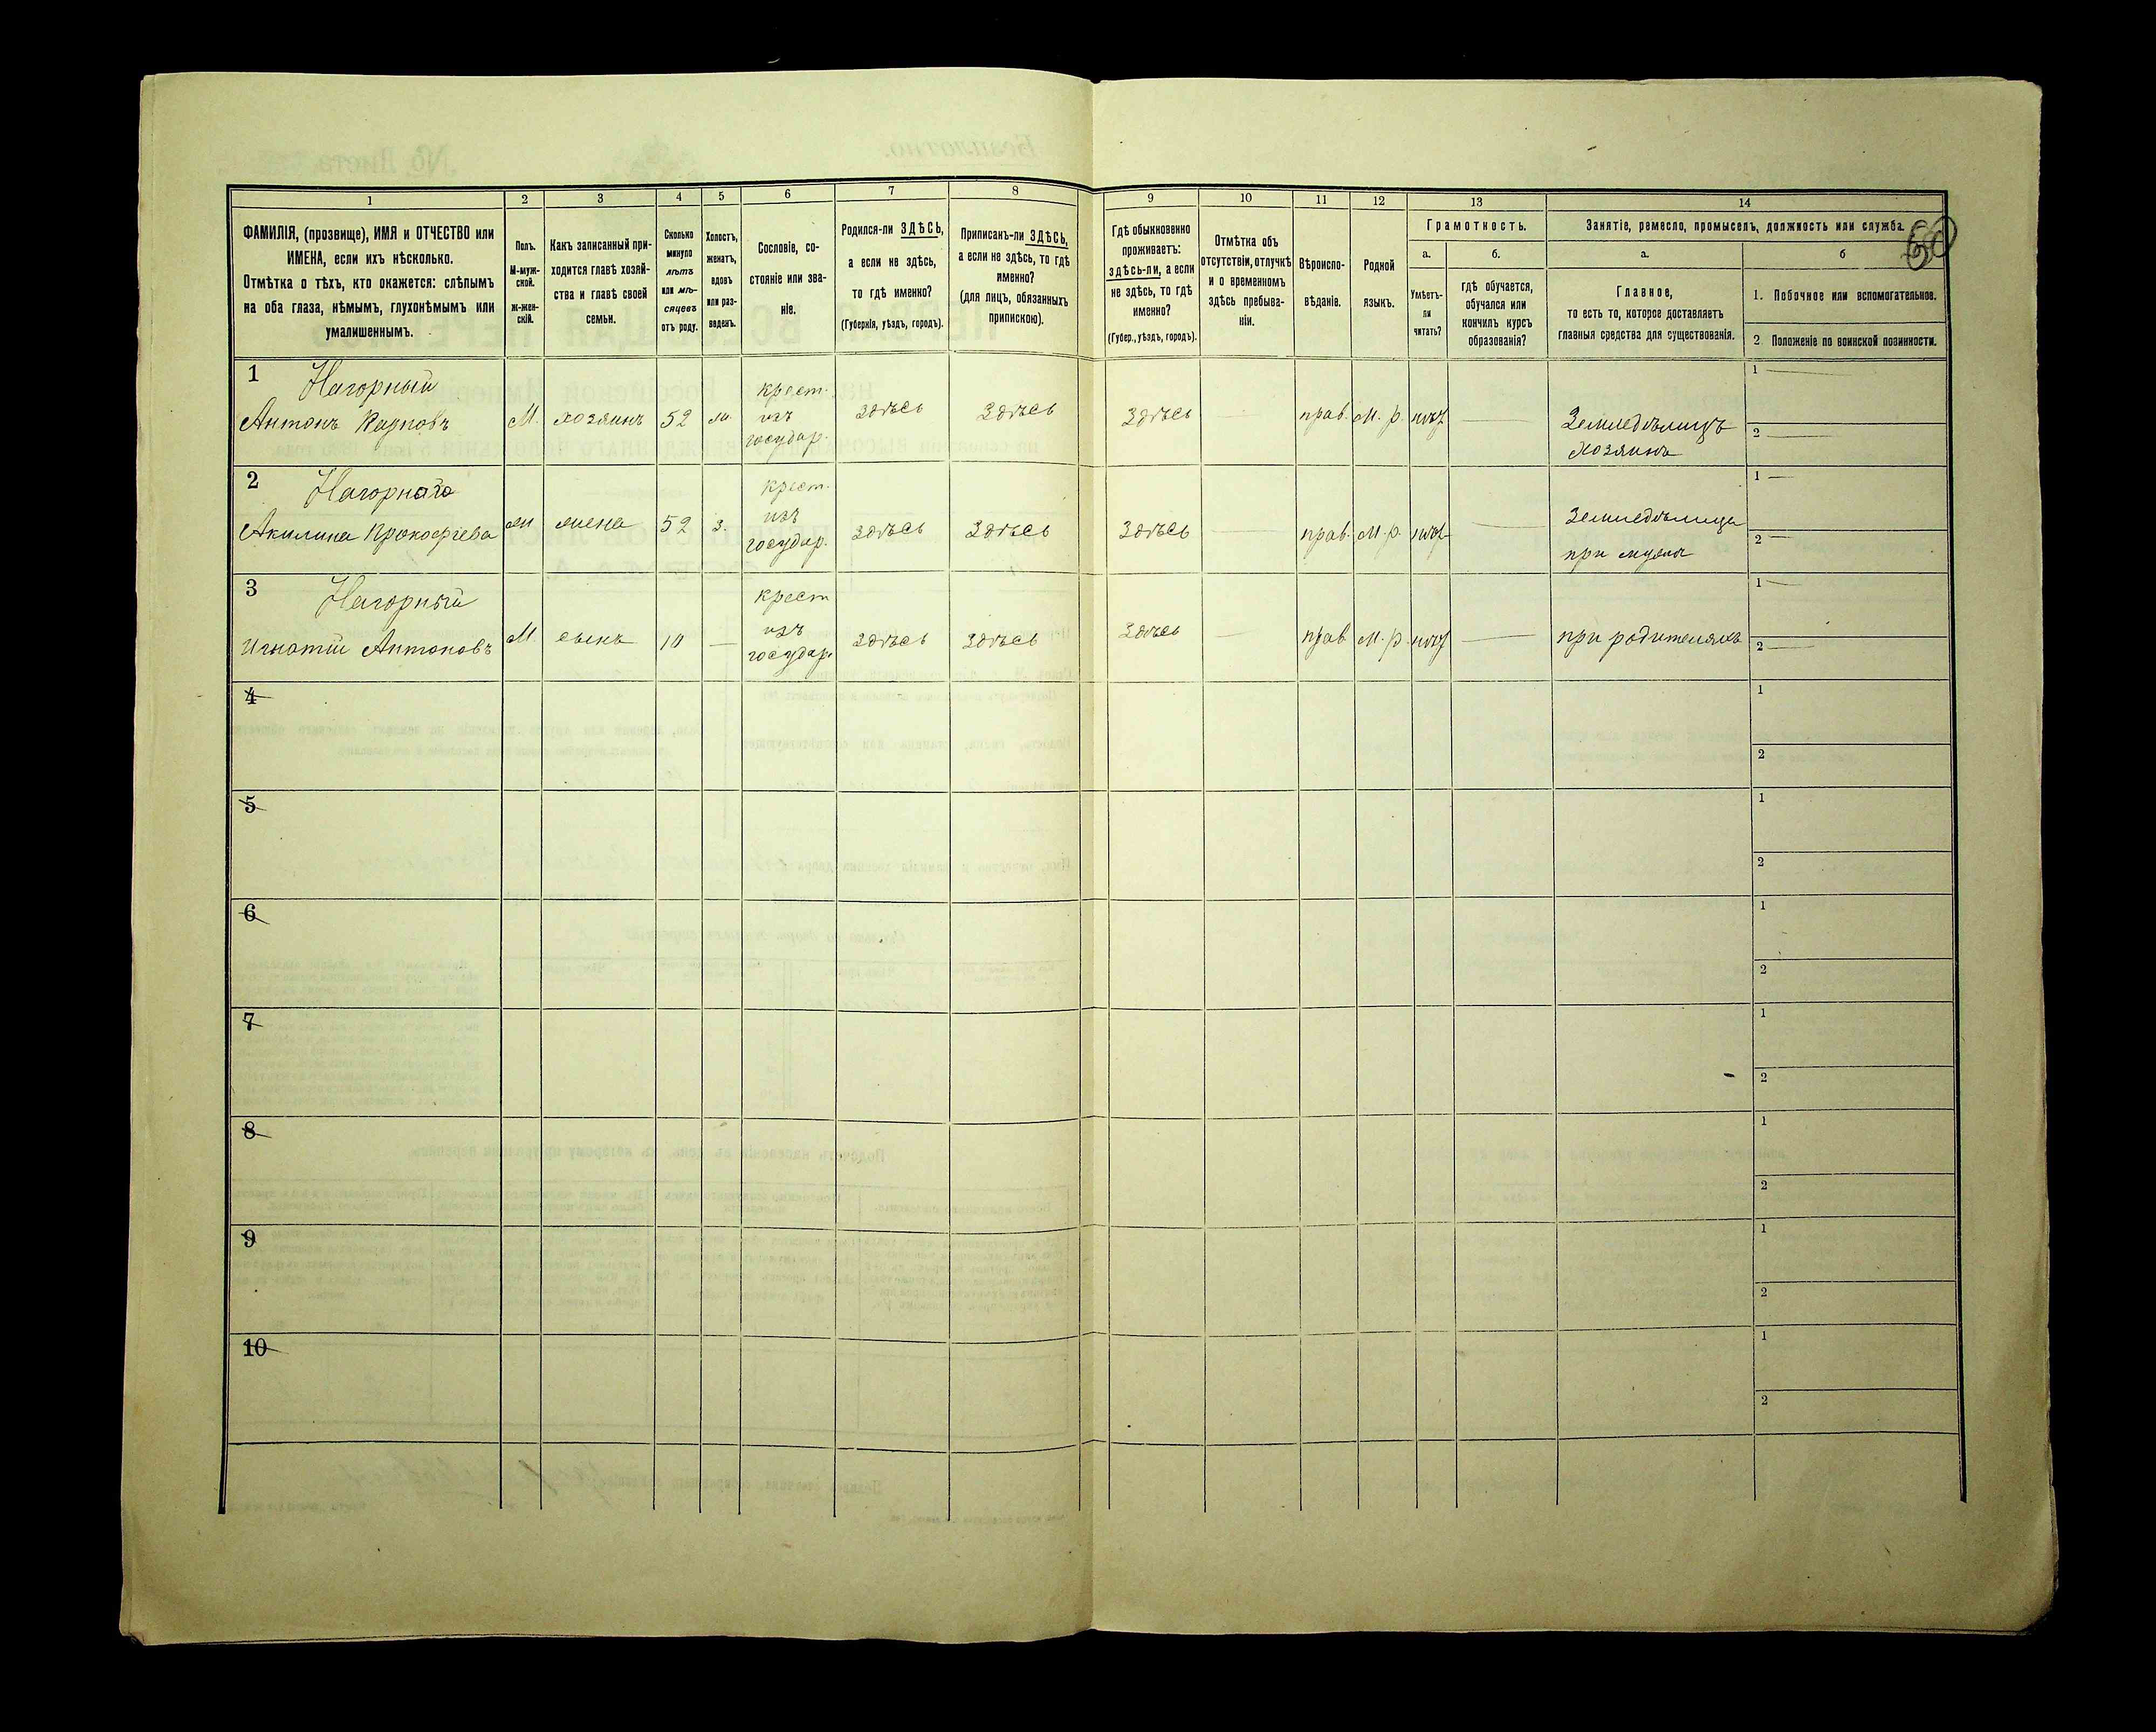 1 2 3 4 5 6 7 8 9 10 11 12 13 14
ФАМИЛІЯ, (прозвище), ИМЯ и ОТЧЕСТВО или
ИМЕНА, если ихъ нѣсколько.
Отмѣтка о тѣхъ, кто окажется: слѣпымъ
на оба глаза, нѣмымъ, глухонѣмымъ или
умалишеннымъ.
Полъ.
М-муж-
ской.
ж-жен-
скій.
Какъ записанный при-
ходится главѣ хозяй-
ства и главѣ своей
семьи.
Сколько
минуло
лѣтъ
или мѣ-
сяцевъ
отъ роду.
Холостъ,
женатъ,
вдовъ
или раз-
веденъ.
Сословіе, со-
стояніе или зва-
ніе.
Родился-ли ЗДѢСЬ,
а если не здѣсь,
то гдѣ именно?
(Губернія, уѣздъ, городъ).
Приписанъ-ли ЗДѢСЬ,
а если не здѣсь, то гдѣ
именно?
(для лицъ, обязанныхъ
припискою).
Гдѣ обыкновенно
проживаетъ:
здѣсь-ли, а если
не здѣсь, то гдѣ
именно?
(Губер., уѣздъ, городъ).
Отмѣтка объ
отсутствіи, отлучкѣ
и о временномъ
здѣсь пребыва-
ніи.
Вѣроиспо-
вѣданіе.
Родной
языкъ.
Грамотность.
а.
Умѣетъ-
ли
читать?
б.
гдѣ обучается,
обучался или
кончилъ курсъ
образованія?
Занятіе, ремесло, промыселъ, должность или служба.
а.
Главное,
то есть то, которое доставляетъ
главныя средства для существованія.
б
1. Побочное или вспомогательное.
2 Положеніе по воинской повинности.
1 Нагорный
Антонъ
М. хозяинъ 52
крест.
изъ
государ.
здѣсь здѣсь здѣсь — прав. М. р. —
Земледѣлецъ
хозяинъ
1 —
2 —
2
Акилина Прокофіева
жена 52 з.
крест.
изъ
государ.
здѣсь здѣсь здѣсь — прав. М. р. —
Земледѣлица
при мужѣ
1 —
2 —
3 Нагорный
Игнатій Антоновъ
М. сынъ 10 —
крест
изъ
государ.
здѣсь здѣсь здѣсь — прав М. р. —
при родителяхъ
1 —
2 —
4
1
2
5
1
2
6
1
2
7
1
2
8
1
2
9
1
2
10
1
2